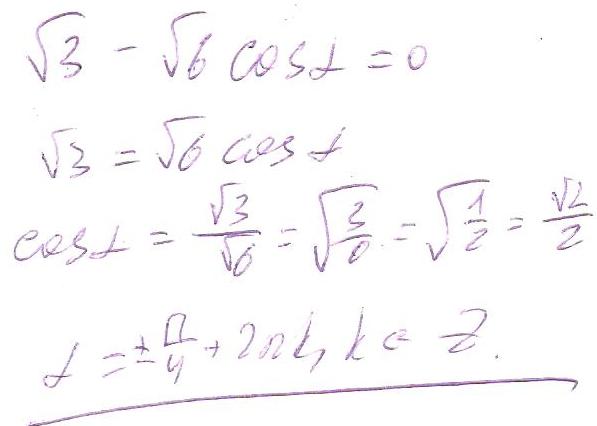 √3 - √6 cos α = 0
√3 = √6 cos α
cos α = √3/√6 = √(3/6) = √(1/2) = √2/2
α = ± π/4 + 2πk, k ∈ Z.